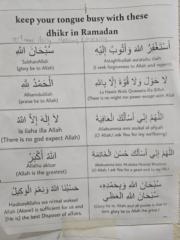 keep your tongue busy with these
dhikr in Ramadan
سُبْحَانَ اللَّهِ
SubhanAllah
(glory be to Allah)
أَسْتَغْفِرُ اللَّهَ وَأَتُوبُ إِلَيْهِ
Astaghfirullah wa atubu ilaih
(I seek forgiveness to Allah and repent)
الْحَمْدُ لِلَّهِ
Alhamdulillah
(praise be to Allah)
لَا حَوْلَ وَلَا قُوَّةَ إِلَّا بِاللَّهِ
La Hawla Wala Quwwata illa Billah
(There is no might nor power except with Allah)
لَا إِلَهَ إِلَّا اللَّهُ
la ilaha illa Allah
(There is no god except Allah)
اللَّهُمَّ إِنِّي أَسْأَلُكَ الْعَافِيَةَ
(O Allah I ask You for
اللَّهُ أَكْبَرُ
Allahu akbar
(Allah is the greatest)
اللَّهُمَّ إِنِّي أَسْأَلُكَ حُسْنَ الْخَاتِمَةِ
(O Allah I ask You for a good end
حَسْبُنَا اللَّهُ وَنِعْمَ الْوَكِيلُ
HasbunAllahu wa ni'mal wakeel
Allah (Alone) is sufficient for us and
(He is) the best Disposer of affairs.
سُبْحَانَ اللَّهِ وَبِحَمْدِهِ
سُبْحَانَ اللَّهِ الْعَظِيمِ